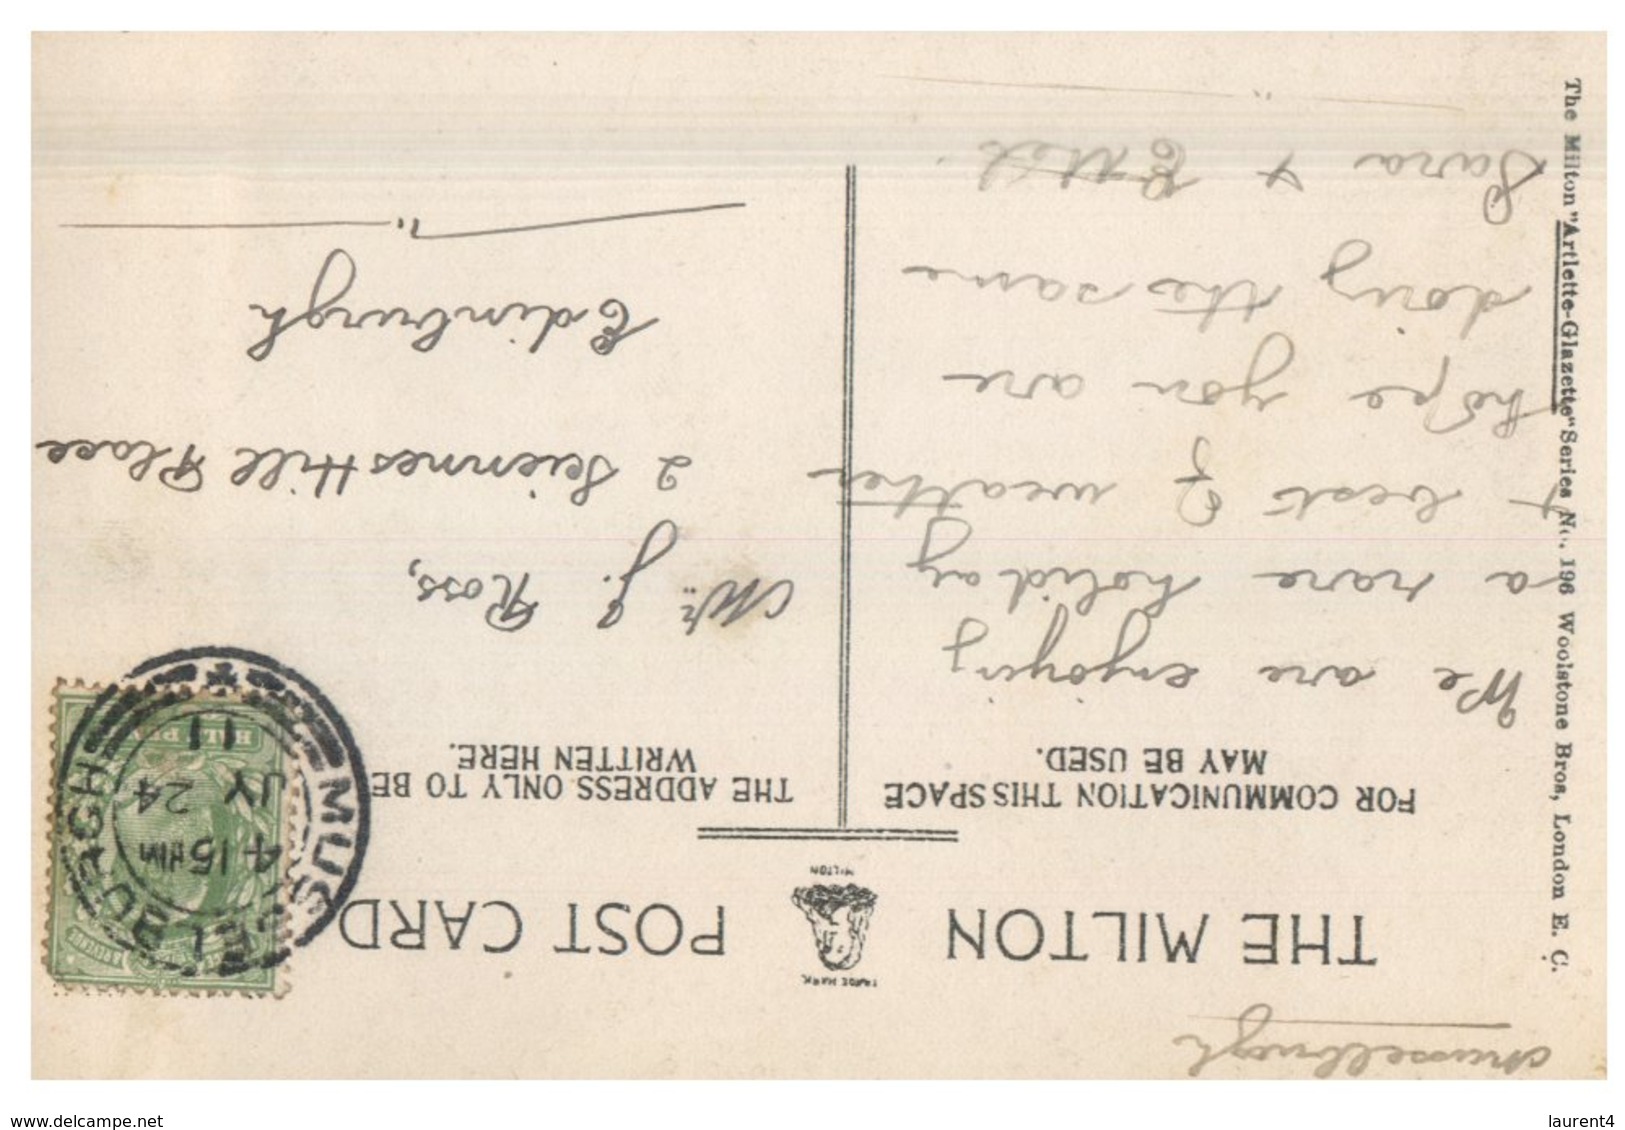 Musselburgh
THE MILTON POST CARD
TRADE MARK
MILTON
FOR COMMUNICATION THIS SPACE
MAY BE USED.
THE ADDRESS ONLY TO BE
WRITTEN HERE.
We are enjoying
a rare holiday
+ best of weather
hope you are
doing the same
Sara + Ethel
Mr. J. Ross,
2 Sciennes Hill Place
Edinburgh
MUSSELBURGH
4 15 PM
JY 24
11
HALF PENNY
The Milton "Artlette-Glazette" Series No. 196 Woolstone Bros, London E. C.
www.delcampe.net
laurent4